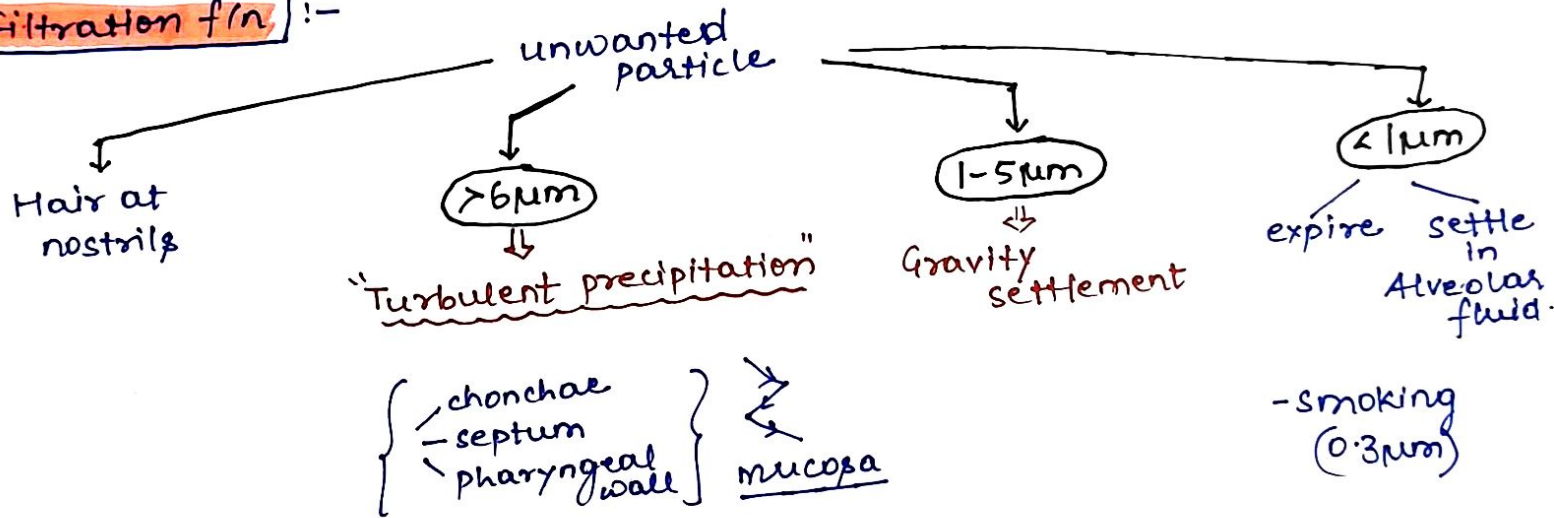 filtration f/n :-
unwanted
particle
Hair at
nostrils
>6μm
"Turbulent precipitation"
chonchae
- septum
pharyngeal
wall
mucosa
1-5μm
Gravity
settlement
< 1μm
expire
settle
in
Alveolar
fluid.
- smoking
(0.3μm)